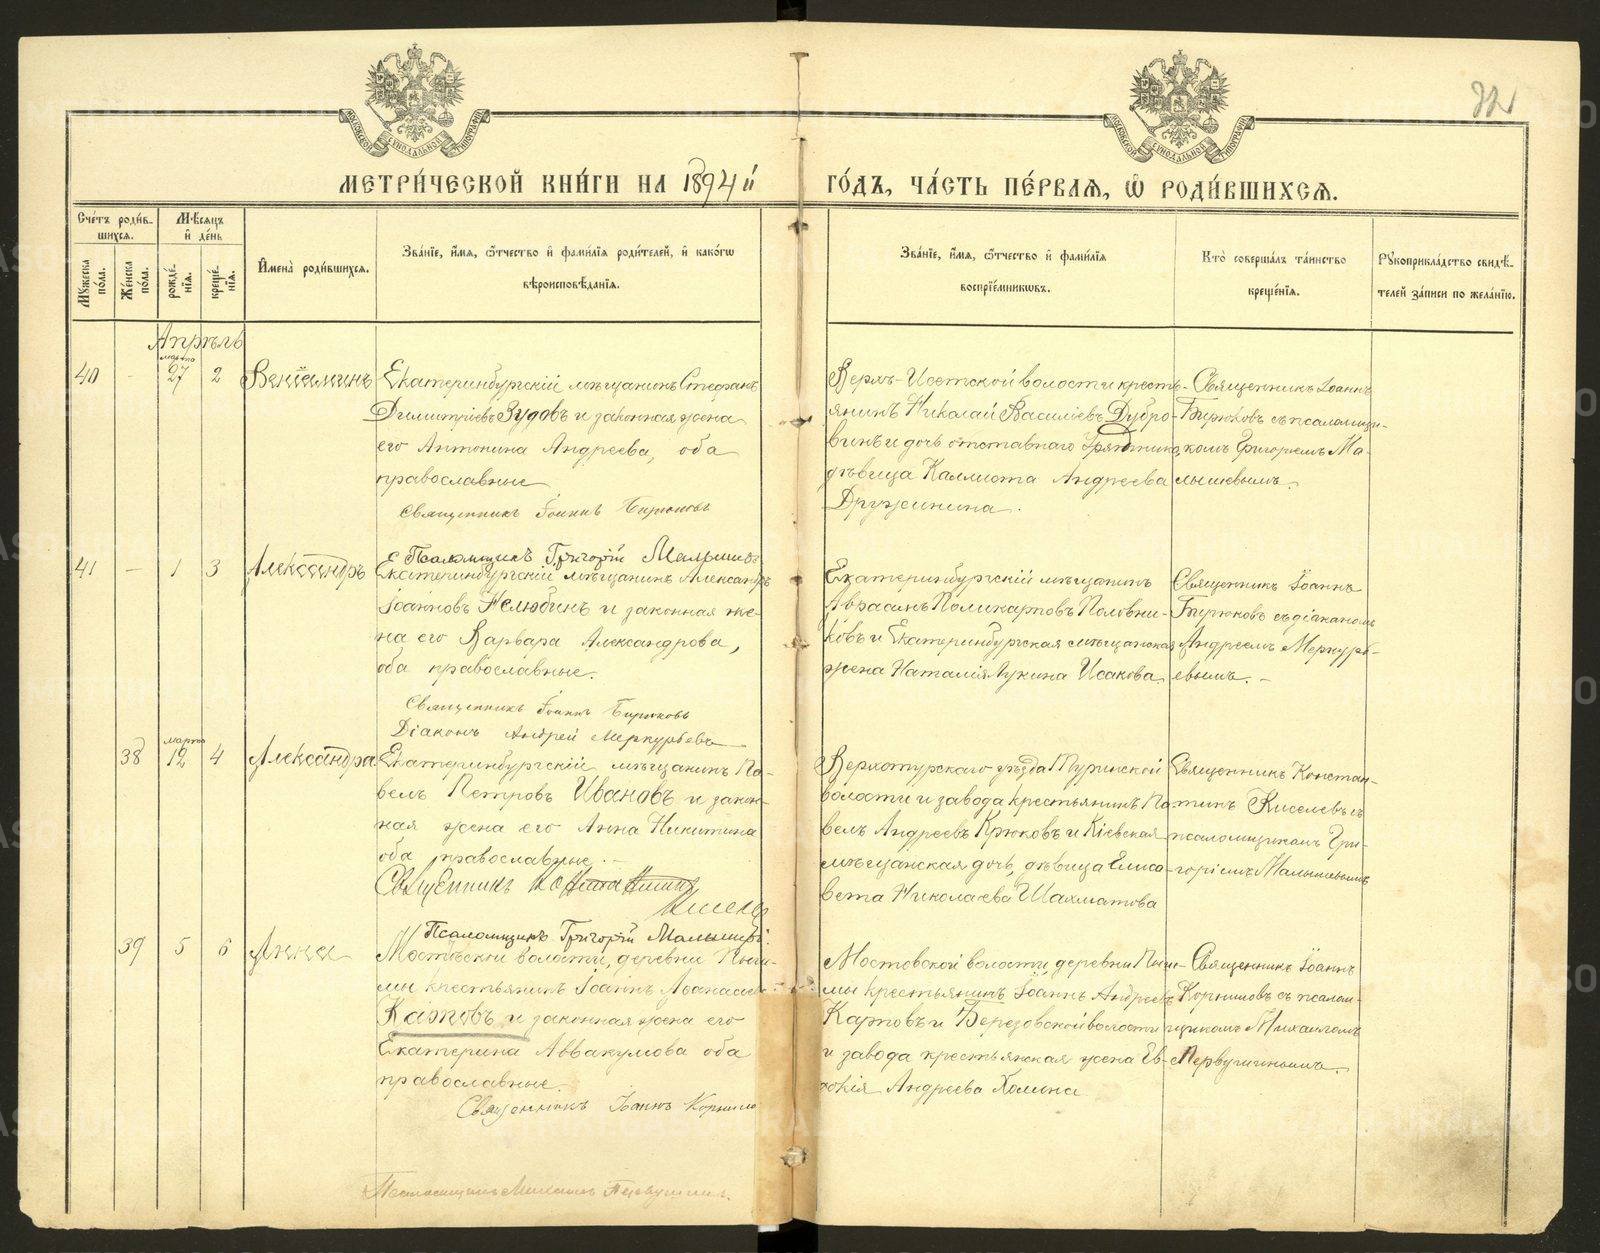 32
МОСКОВСКОЙ СѴНОДАЛЬНОЙ ТИПОГРАФІИ
МОСКОВСКОЙ СѴНОДАЛЬНОЙ ТИПОГРАФІИ
МЕТРИ́ЧЕСКОЙ КНИ́ГИ НА 1894й ГО́ДЪ, ЧА́СТЬ ПЕ́РВАЯ, Ѡ РОДИ́ВШИХСЯ.
Сче́тъ роди́в-
шихся.
Мꙋжеска по́ла.
Же́нска по́ла.
Мѣ́сяцъ
и҆ де́нь
рожде́-
нїя.
креще́-
нїя.
И҆мена̀ роди́вшихся.
Зва́нїе, и҆́мя, ѻ҆́тчество и҆ фами́лїя роди́телей, и҆ како́гѡ
вѣроисповѣ́данїя.
Зва́нїе, и҆́мя, ѻ҆́тчество и҆ фами́лїя
воспрїе́мникѡвъ.
Кто̀ соверша́лъ та́инство
креще́нїя.
Рꙋкоприкла́дство свидѣ́-
телей за́писи по жела́нїю.
Апрѣль
марта
40 - 27 2 Веніаминъ
Екатеринбургскій мѣщанинъ Стефанъ
Димитріевъ Зудовъ и законная жена
его Антонина Андреева, оба
православные
Священникъ Іоаннъ Бирюковъ
Псаломщикъ Григорій Малышевъ
Верхъ-Исетской волости кресть-
янинъ Николай Василіевъ Дубро-
винъ и дочь отставнаго
дѣвица Каллиста Андреева
Дружинина.
Священникъ Іоаннъ
Бирюковъ съ псаломщи-
комъ Григоріемъ Ма-
лышевымъ.
41 - 1 3 Александръ
Екатеринбургскій мѣщанинъ Александръ
Іоанновъ Нелюбинъ и законная же-
на его Варвара Александрова,
оба православные.
Священникъ Іоаннъ Бирюковъ
Діаконъ Андрей Меркурьевъ
Екатеринбургскій мѣщанинъ
Поликарповъ Половни-
ковъ и Екатеринбургская мѣщанская
жена Наталія Лукина Исакова.
Священникъ Іоаннъ
Бирюковъ съ діакономъ
Андреемъ Меркурь-
евымъ. -
марта
38 12 4 Александра
Екатеринбургскій мѣщанинъ Па-
велъ Петровъ Ивановъ и закон-
ная жена его Анна Никитина
оба православные. -
Священникъ Константинъ
Киселевъ
Псаломщикъ Григорій Малышевъ.
Верхотурскаго уѣзда Туринской
волости и завода крестьянинъ Па-
велъ Андреевъ Крюковъ и Кіевская
мѣщанская дочь, дѣвица Елиса-
вета Николаева Шахматова
Священникъ Констан-
тинъ Киселевъ съ
псаломщикомъ Гри-
горіемъ Малышевымъ
39 5 6 Анна
Мостовской волости, деревни
мы крестьянинъ Іоаннъ Аѳанасіевъ
и законная жена его
Екатерина Аввакумова оба
православные.
Священникъ Іоаннъ Корнило
Псаломщикъ Михаилъ Первушинъ.
Мостовской волости, деревни
мы крестьянинъ Іоаннъ Андреевъ
Карповъ и Березовской волости
и завода крестьянская жена Ев-
докія Андреева
Священникъ Іоаннъ
Корниловъ съ псалом-
щикомъ Михаиломъ
Первушинымъ.